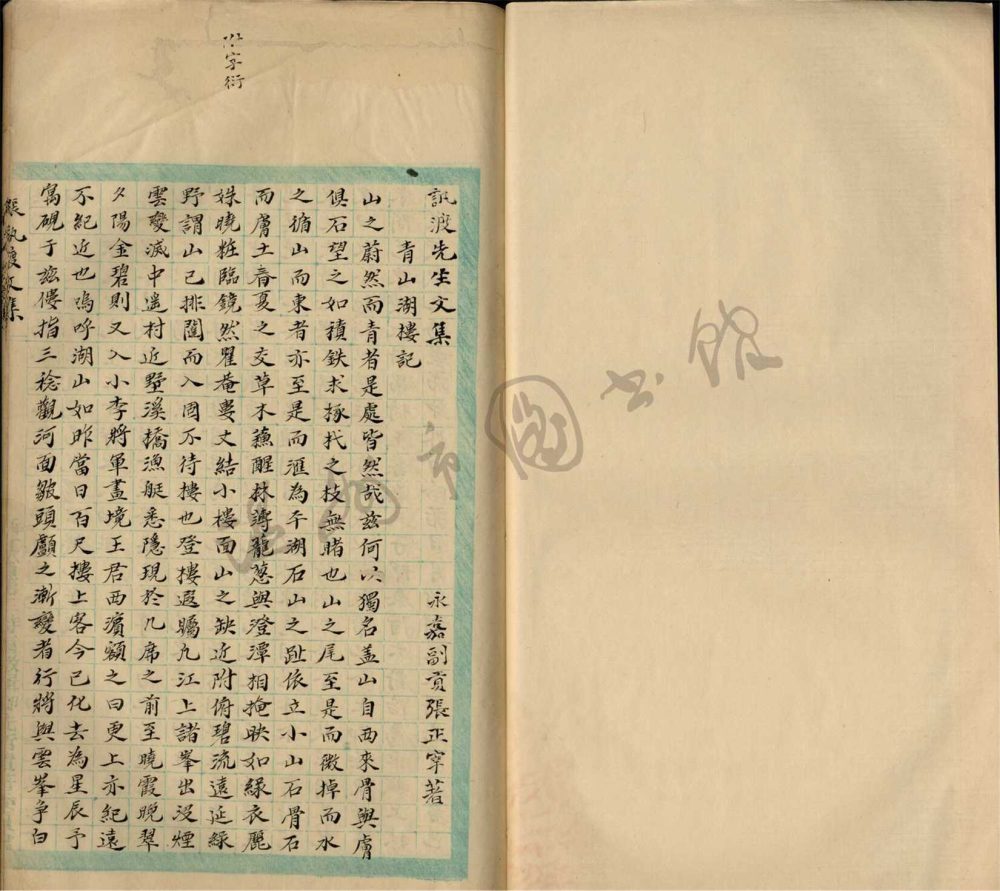 訊渡先生文集 永嘉副貢張正宰著
青山湖樓記
山之蔚然而青者是處皆然哉茲何以獨名盖山自西來骨與膚
俱石望之如積鉄求椓杙之技無賭也山之尾至是而微掉而水
之循山而東者亦至是而滙為平湖石山之趾依立小山石骨石
而膚土春夏之交草木蘓醒林薄蘢葱與澄潭相掩映如緑衣麗
姝曉粧臨鏡然瞿菴婁丈結小樓面山之缺近附俯碧流遠延綠
野謂山已排闥而入固不待樓也登樓遐矚凡江上諸峯出沒煙
雲變滅中遥村近墅溪橋漁艇悉隱現於几席之前至曉霞晚翠
夕陽金碧則又入小李將軍畫境王君西濵額之曰更上亦紀遠
不紀近也嗚呼湖山如昨當日百尺樓上客今已化去為星辰予
寓硯于兹僂指三稔觀河面皺頭顱之漸變者行將與雲峯争白
附字衍
文集
市圖書館